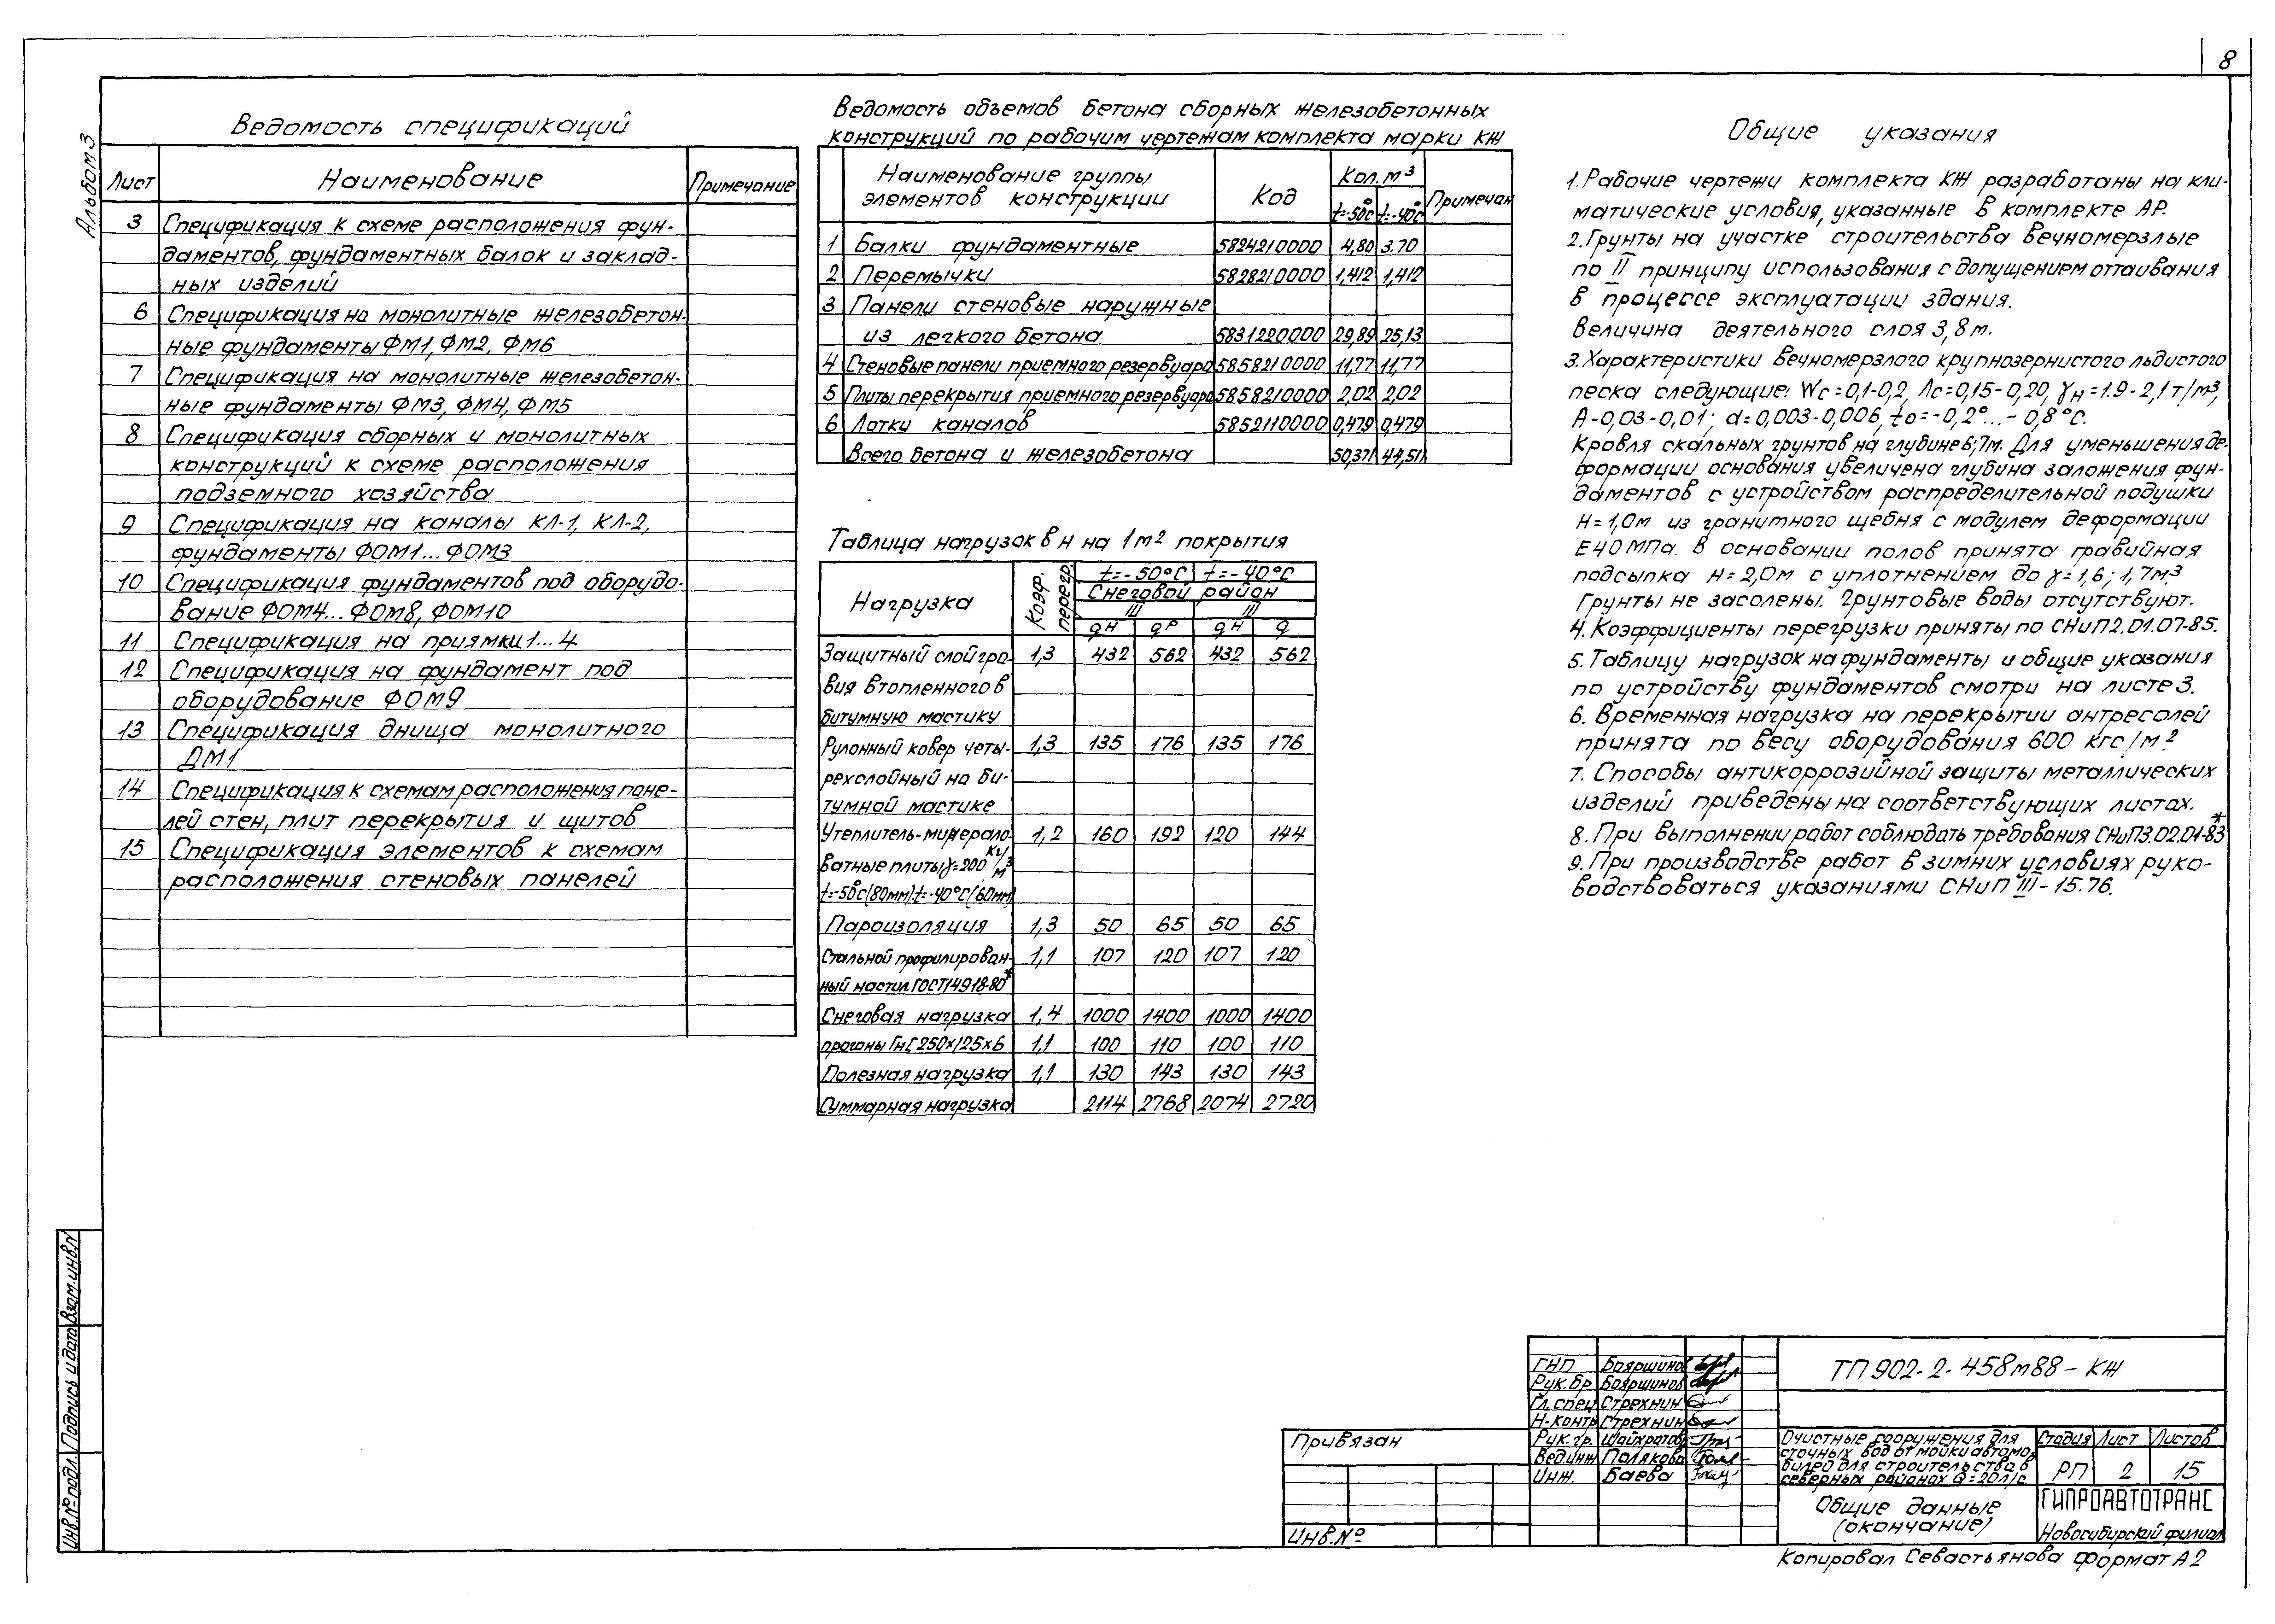 8
Альбом 3
Ведомость спецификаций
Лист Наименование Примечание
3 Спецификация к схеме расположения фун-
даментов, фундаментных балок и заклад-
ных изделий
6 Спецификация на монолитные железобетон-
ные фундаменты ФМ1, ФМ2, ФМ6
7 Спецификация на монолитные железобетон-
ные фундаменты ФМ3, ФМ4, ФМ5
8 Спецификация сборных и монолитных
конструкций к схеме расположения
подземного хозяйства
9 Спецификация на каналы КЛ-1, КЛ-2,
фундаменты ФОМ1...ФОМ3
10 Спецификация фундаментов под оборудо-
вание ФОМ4...ФОМ8, ФОМ10
11 Спецификация на приямки 1...4
12 Спецификация на фундамент под
оборудование ФОМ9
13 Спецификация днища монолитного
ДМ1
14 Спецификация к схемам расположения пане-
лей стен, плит перекрытия и щитов
15 Спецификация элементов к схемам
расположения стеновых панелей
Ведомость объемов бетона сборных железобетонных
конструкций по рабочим чертежам комплекта марки КЖ
Наименование группы элементов конструкции Код Кол. м³ Примечан
t=-50°С t=-40°С
1 Балки фундаментные 5824210000 4,80 3.70
2 Перемычки 5828210000 1,412 1,412
3 Панели стеновые наружные
из легкого бетона 5831220000 29,89 25,13
4 Стеновые панели приемного резервуара 5858210000 11,77 11,77
5 Плиты перекрытия приемного резервуара 5858210000 2,02 2,02
6 Лотки каналов 5852110000 0,479 0,479
Всего бетона и железобетона 50,371 44,511
Таблица нагрузок в н на 1м² покрытия
Нагрузка Коэф. перегр. t=-50°С t=-40°С
Снеговой район
III III
qн qр qн q
Защитный слой гра- 1,3 432 562 432 562
вия втопленного в
битумную мастику
Рулонный ковер четы- 1,3 135 176 135 176
рехслойный на би-
тумной мастике
Утеплитель-минерало- 1,2 160 192 120 144
ватные плиты γ=200 кг/м³
t=-50°С(80мм).t=-40°С(60мм)
Пароизоляция 1,3 50 65 50 65
Стальной профилирован- 1,1 107 120 107 120
ный настил ГОСТ14918-80*
Снеговая нагрузка 1,4 1000 1400 1000 1400
прогоны Гн[250×125×6 1,1 100 110 100 110
Полезная нагрузка 1,1 130 143 130 143
Суммарная нагрузка 2114 2768 2074 2720
Общие указания
1. Рабочие чертежи комплекта КЖ разработаны на кли-
матические условия, указанные в комплекте АР.
2. Грунты на участке строительства вечномерзлые
по II принципу использования с допущением оттаивания
в процессе эксплуатации здания.
Величина деятельного слоя 3,8м.
3. Характеристики вечномерзлого крупнозернистого льдистого
песка следующие: Wс=0,1-0,2, Лс=0,15-0,20, γн=1.9-2,1т/м³,
А-0,03-0,01; а=0,003-0,006, tо=-0,2°...-0,8°С.
Кровля скальных грунтов на глубине 6;7м. Для уменьшения де-
формации основания увеличена глубина заложения фун-
даментов с устройством распределительной подушки
Н=1,0м из гранитного щебня с модулем деформации
Е40МПа. В основании полов принята гравийная
подсыпка Н=2,0м с уплотнением до γ=1,6;1,7м³.
Грунты не засолены. Грунтовые воды отсутствуют.
4. Коэффициенты перегрузки приняты по СНиП2.01.07-85.
5. Таблицу нагрузок на фундаменты и общие указания
по устройству фундаментов смотри на листе 3.
6. Временная нагрузка на перекрытии антресолей
принята по весу оборудования 600 кгс/м²
7. Способы антикоррозийной защиты металлических
изделий приведены на соответствующих листах.
8. При выполнении работ соблюдать требования СНиП3.02.01-83*
9. При производстве работ в зимних условиях руко-
водствоваться указаниями СНиП III-15.76.
Инв.№подл. Подпись и дата Взам.инв.№
Привязан
Инв.№
ГНП Бояршинов
Рук.бр Бояршинов
Гл.спец Стрехнин
Н-контр Стрехнин
Рук.гр. Шайхратов
Вед.инж Полякова
Инж. Баева
ТП902-2-458м88-КЖ
Очистные сооружения для
сточных вод от мойки автомо-
билей для строительства в
северных районах Q=20л/с
Стадия Лист Листов
РП 2 15
Общие данные
(окончание)
ГИПРОАВТОТРАНС
Новосибирский филиал
Копировал Севастьянова Формат А2